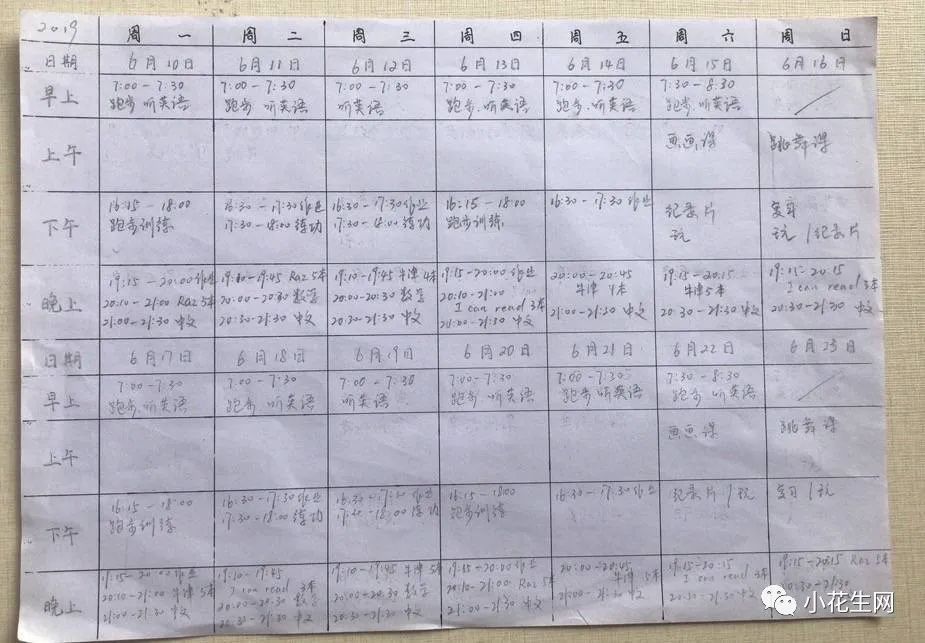 2019 周一 周二 周三 周四 周五 周六 周日
日期 6月10日 6月11日 6月12日 6月13日 6月14日 6月15日 6月16日
早上 7:00-7:30 7:00-7:30 7:00-7:30 7:00-7:30 7:00-7:30 7:30-8:30
跑步.听英语 跑步.听英语 听英语 跑步.听英语 跑步.听英语 跑步.听英语
上午 画画课 跳舞课
下午 16:15-18:00 16:30-17:30作业 16:30-17:30作业 16:15-18:00 16:30-17:30作业 纪录片 复习
跑步训练 17:30-18:00练功 17:30-18:00练功 跑步训练 玩 玩/纪录片
晚上 19:15-20:00作业 19:10-19:45 Raz 5本 19:10-19:45 牛津4本 19:15-20:00作业 20:00-20:45 19:15-20:15 19:15-20:15
20:10-21:00 Raz 5本 20:00-20:30数学 20:00-20:30数学 20:10-21:00 牛津 牛津5本 I can read 3本
21:00-21:30中文 20:30-21:30中文 20:30-21:30中文 I can read 3本 21:00-21:30中文 20:30-21:30中文 20:30-21:30中文
中文
日期 6月17日 6月18日 6月19日 6月20日 6月21日 6月22日 6月23日
早上 7:00-7:30 7:00-7:30 7:00-7:30 7:00-7:30 7:00-7:30 7:30-8:30
跑步.听英语 跑步.听英语 听英语 跑步.听英语 跑步.听英语 跑步.听英语
上午 画画课 跳舞课
下午 16:15-18:00 16:30-17:30作业 16:30-17:30作业 16:15-18:00 16:30-17:30作业 纪录片/玩 复习/玩
跑步训练 17:30-18:00练功 17:30-18:00练功 跑步训练
晚上 19:15-20:00作业 19:10-19:45 19:10-19:45 牛津5本 19:15-20:00作业 20:00-20:45 19:15-20:15 19:15-20:15 Raz 5本
20:10-21:00 牛津5本 I can read 3本 20:00-20:30数学 20:10-21:00 Raz 5本 牛津5本 I can read 3本 20:30-21:30
21:00-21:30中文 20:00-20:30数学 20:30-21:30中文 21:00-21:30中文 21:00-21:30中文 20:30-21:30中文
20:30-21:30中文
小花生网